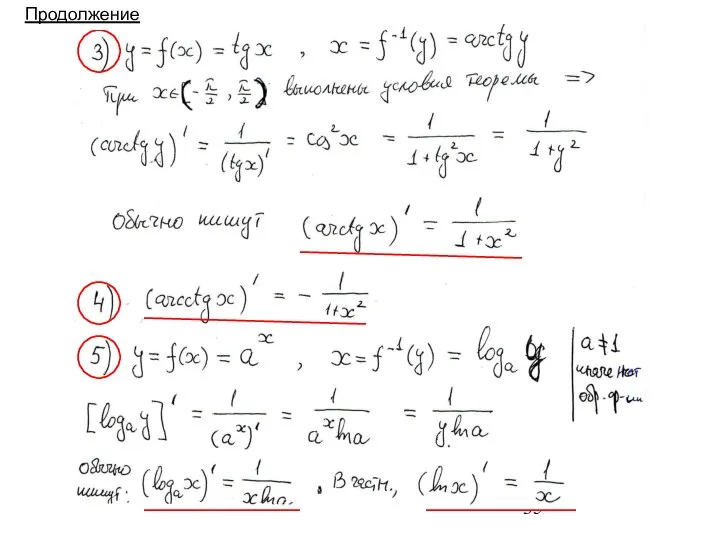 Продолжение
3) y = f(x) = tg x , x = f⁻¹(y) = arctg y
При x∈(-π/2 , π/2) выполнены условия теоремы =>
(arctg y)' = 1/(tg x)' = cos²x = 1/(1+tg²x) = 1/(1+y²)
Обычно пишут (arctg x)' = 1/(1+x²)
4) (arcctg x)' = - 1/(1+x²)
5) y = f(x) = aˣ , x = f⁻¹(y) = logₐ y | a≠1
иначе нет
обр. ф-ии
[logₐ y]' = 1/(aˣ)' = 1/(aˣ ln a) = 1/(y ln a)
обычно пишут: (logₐ x)' = 1/(x ln a) . В частн., (ln x)' = 1/x